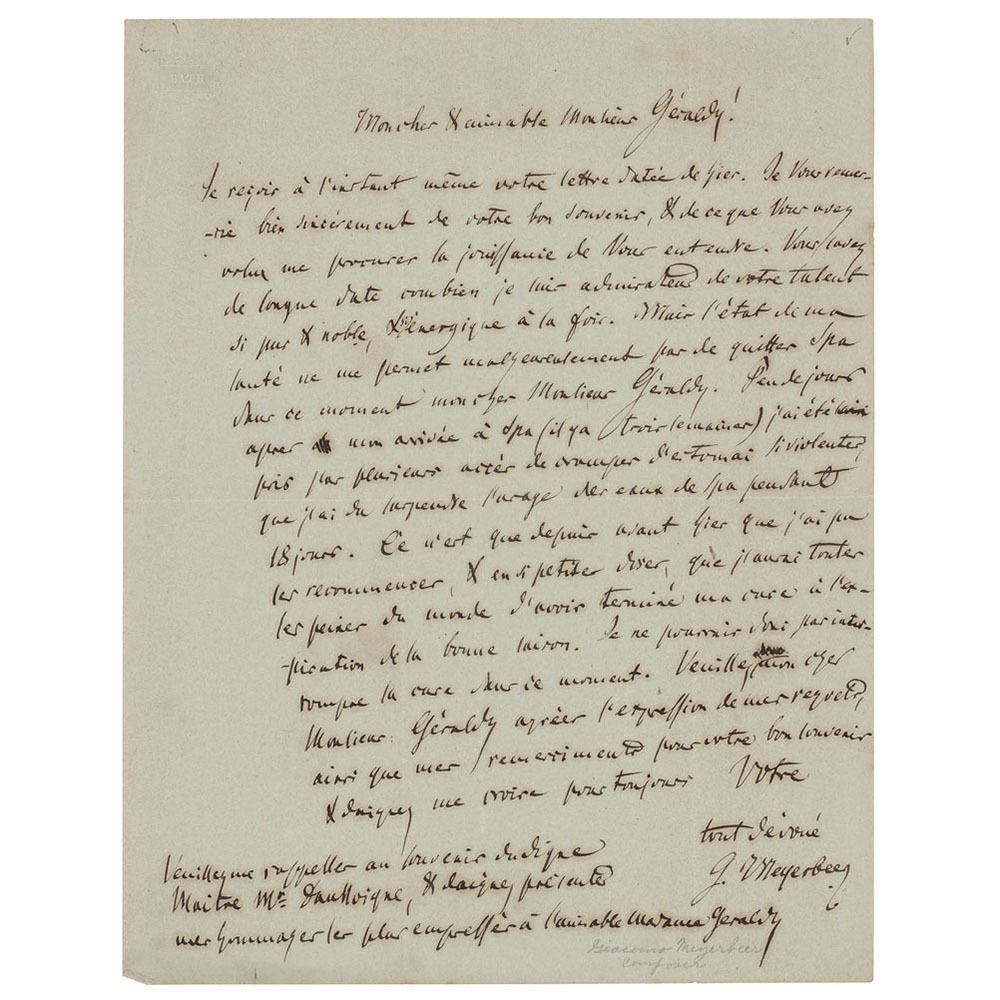 BATH
Mon cher & aimable Monsieur Géraldy!
Je reçois à l'instant même votre lettre datée de hier. Je Vous remer-
-cie bien sincèrement de votre bon souvenir, & de ce que Vous avez
voulu me procurer la jouissance de Vous entendre. Vous savez
de longue date combien je suis admirateur de votre talent
si pur & noble, & si énergique à la fois. Mais l'état de ma
santé ne me permet malheureusement pas de quitter Spa
dans ce moment mon cher Monsieur Géraldy. Peu de jours
après mon arrivée à Spa (il y a trois semaines) j'ai été
pris par plusieurs accès de crampes d'estomac si violentes,
que j'ai du suspendre l'usage des eaux de Spa pendant
18 jours. Ce n'est que depuis avant hier que j'ai pu
les recommencer, & en si petites doses, que j'aurai toutes
les peines du monde d'avoir terminé ma cure à l'ex-
-piration de la bonne saison. Je ne pourrais donc pas inter-
rompre la cure dans ce moment. Veuillez mon cher
Monsieur Géraldy agréer l'expression de mes regrets,
ainsi que mes remerciments pour votre bon souvenir
& daignez me croire pour toujours Votre
tout dévoué
G. Meyerbeer
Veuillez me rappeller au souvenir du digne
Maitre Mr. Daussoigne, & daignez présenter
mes hommages les plus empressés à l'aimable Madame Géraldy
Giacomo Meyerbeer
Composer